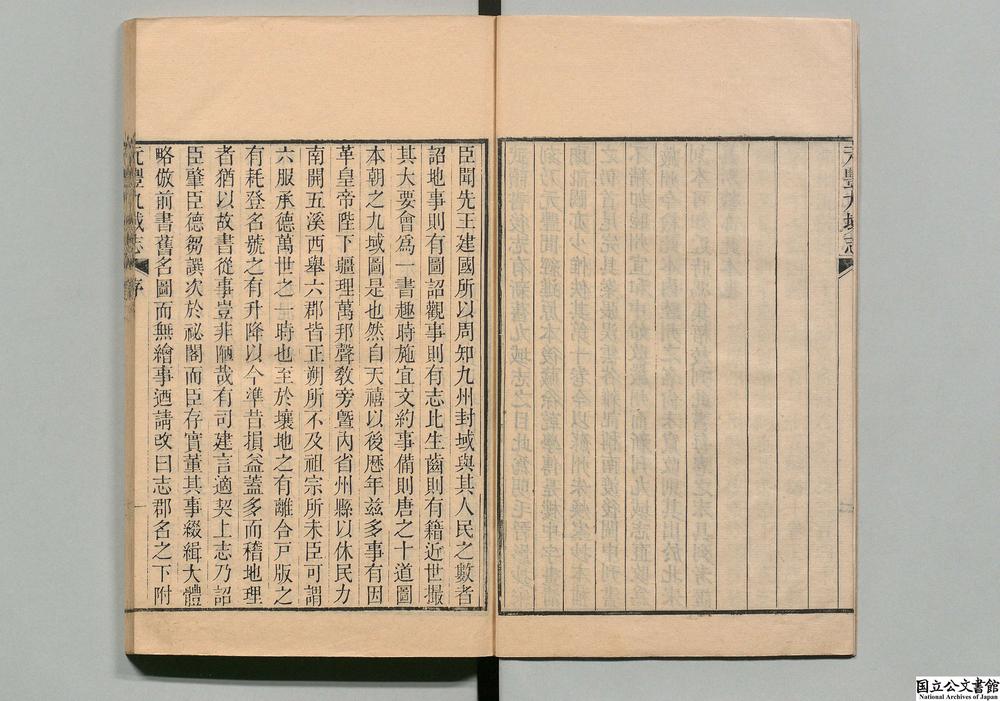 元豐九域志
臣聞先王建國所以周知九州封域與其人民之數者
詔地事則有圖詔觀事則有志比生齒則有籍近世撮
其大要會爲一書趣時施宜文約事備則唐之十道圖
本朝之九域圖是也然自天禧以後歷年兹多事有因
革皇帝陛下疆理萬邦聲教旁曁內省州縣以休民力
南開五溪西舉六郡皆正朔所不及祖宗所未臣可謂
六服承德萬世之一時也至於壤地之有離合戸版之
有耗登名號之有升降以今準昔損益蓋多而稽地理
者猶以故書從事豈非陋哉有司建言適契上志乃詔
臣肇臣德芻譔次於祕閣而臣存實董其事綴緝大體
略倣前書舊名圖而無繪事迺請改曰志郡名之下附
元豐九域志 序 一
国立公文書館
National Archives of Japan